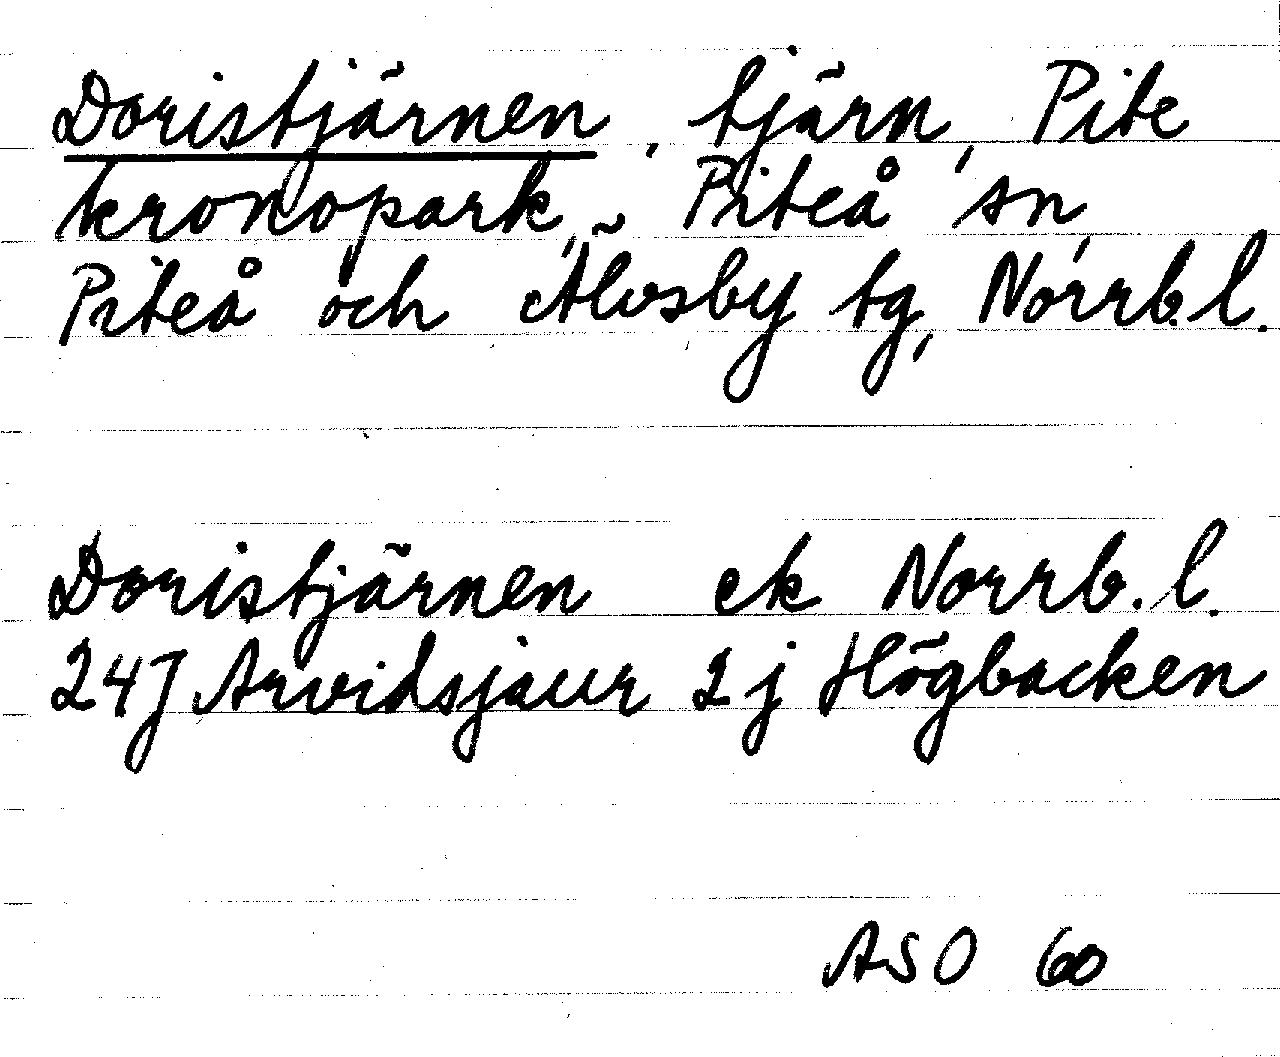 Doristjärnen, tjärn, Pite
kronopark, Piteå sn,
Piteå och Älvsby tg, Norrb.l.
Doristjärnen ek Norrb.l.
24J Arvidsjaur 2j Högbacken
ASO 60